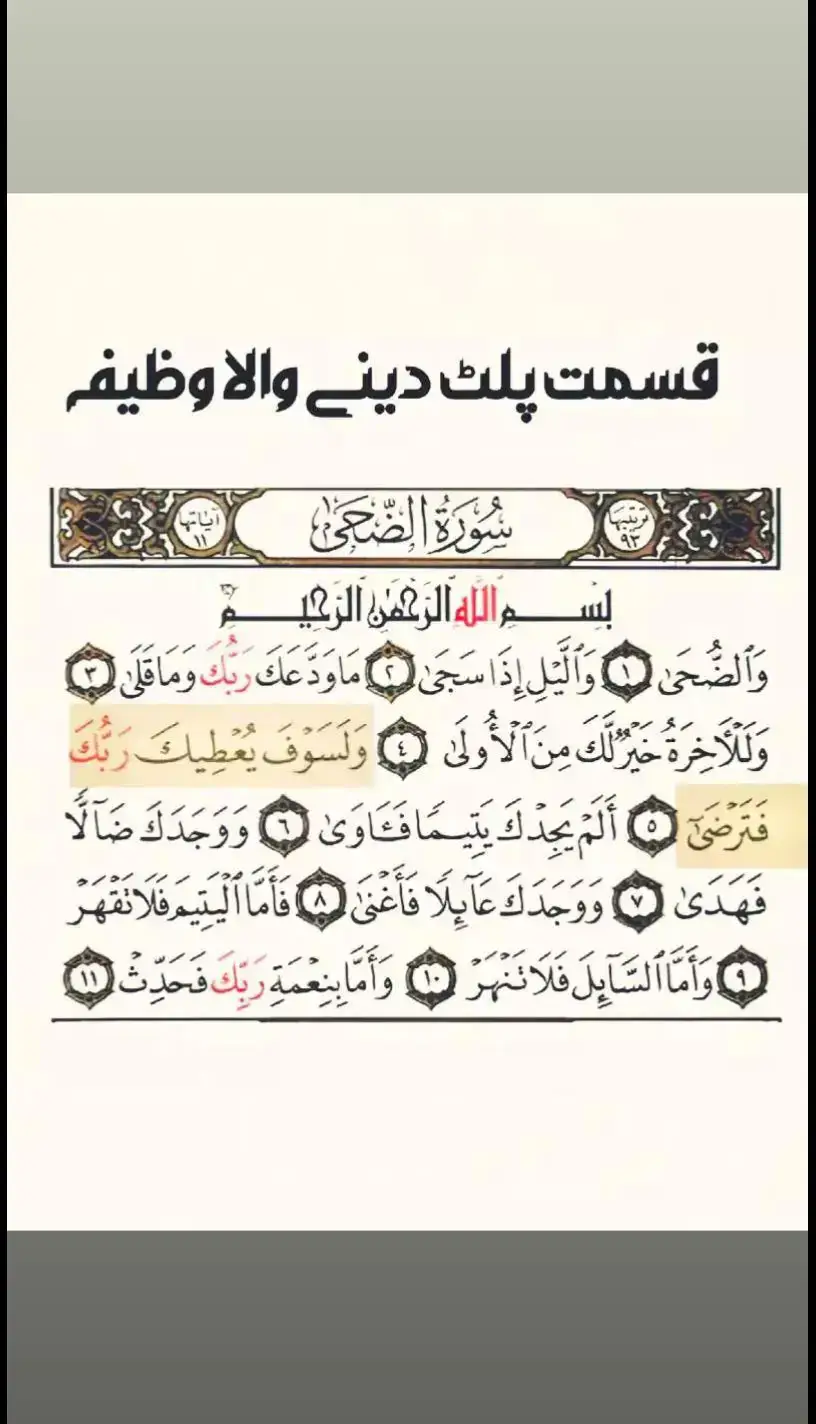 قسمت پلٹ دینے والا وظیفہ
ترتيبها ٩٣ سُورَةُ الضُّحَىٰ آياتها ١١
بِسْمِ اللَّهِ الرَّحْمَٰنِ الرَّحِيمِ
وَٱلضُّحَىٰ ١ وَٱلَّيْلِ إِذَا سَجَىٰ ٢ مَا وَدَّعَكَ رَبُّكَ وَمَا قَلَىٰ ٣
وَلَلْأَخِرَةُ خَيْرٌ لَّكَ مِنَ ٱلْأُولَىٰ ٤ وَلَسَوْفَ يُعْطِيكَ رَبُّكَ
فَتَرْضَىٰٓ ٥ أَلَمْ يَجِدْكَ يَتِيمًا فَـَٔاوَىٰ ٦ وَوَجَدَكَ ضَآلًّا
فَهَدَىٰ ٧ وَوَجَدَكَ عَآئِلًا فَأَغْنَىٰ ٨ فَأَمَّا ٱلْيَتِيمَ فَلَا تَقْهَرْ
٩ وَأَمَّا ٱلسَّآئِلَ فَلَا تَنْهَرْ ١٠ وَأَمَّا بِنِعْمَةِ رَبِّكَ فَحَدِّثْ ١١